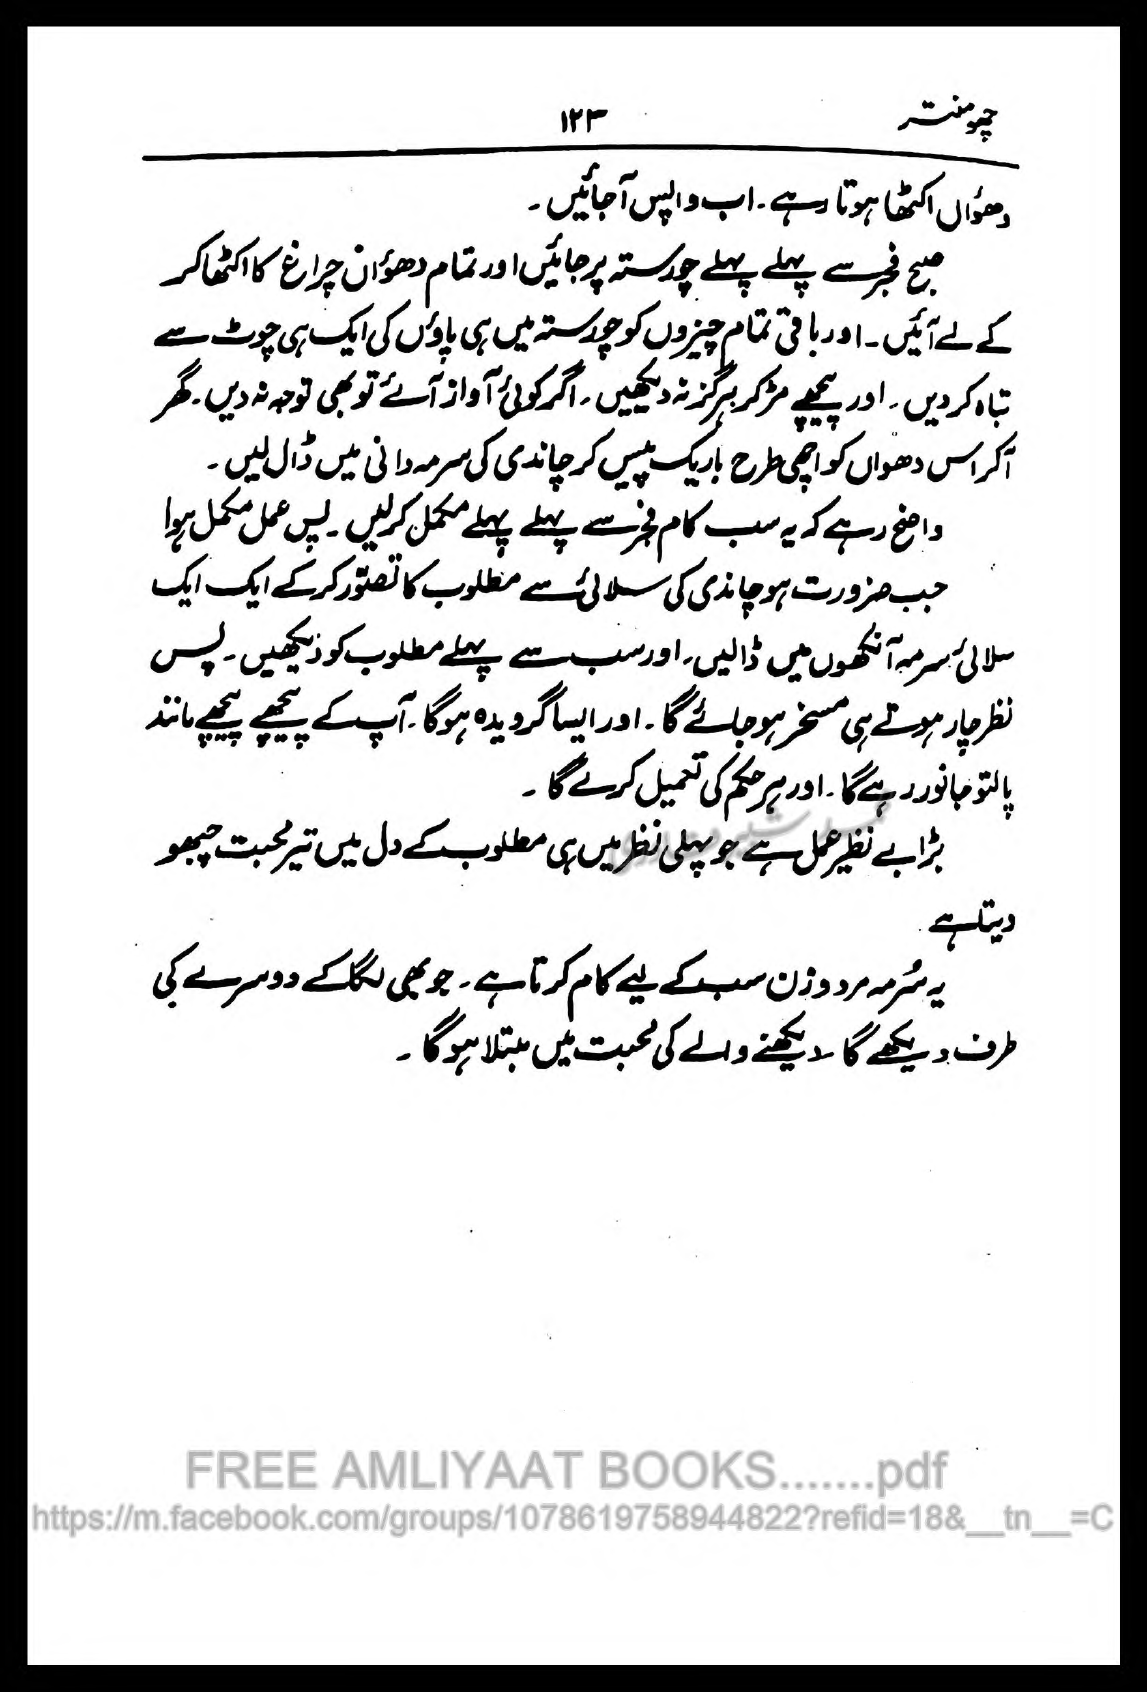 چھومنتر
۱۲۳
دھؤاں اکٹھا ہوتا رہے۔ اب واپس آجائیں۔
صبح فجر سے پہلے پہلے چورستہ پر جائیں اور تمام دھؤان چراغ کا اکٹھا کر
کے لے آئیں۔ اور باقی تمام چیزوں کو چورستہ میں ہی پاؤں کی ایک ہی چوٹ سے
تباہ کر دیں۔ اور پیچھے مڑ کر ہرگز نہ دیکھیں۔ اگر کوئی آواز آئے تو بھی توجہ نہ دیں۔ گھر
آکر اس دھؤاں کو اچھی طرح باریک پیس کر چاندی کی سرمہ دانی میں ڈال لیں۔
واضح رہے کہ یہ سب کام فجر سے پہلے پہلے مکمل کرلیں۔ پس عمل مکمل ہوا
جب ضرورت ہو چاندی کی سلائی سے مطلوب کا تصوّر کر کے ایک ایک
سلائی سرمہ آنکھوں میں ڈالیں۔ اور سب سے پہلے مطلوب کو دیکھیں۔ پس
نظر چار ہوتے ہی مسخر ہو جائے گا۔ اور ایسا گرویدہ ہوگا۔ آپ کے پیچھے پیچھے مانند
پالتو جانور رہے گا۔ اور ہر حکم کی تعمیل کرے گا۔
بڑا بے نظیر عمل ہے جو پہلی نظر میں ہی مطلوب کے دل میں تیر محبت چبھو
دیتا ہے
یہ سُرمہ مرد و زن سب کے لیے کام کرتا ہے۔ جو بھی لگا کے دوسرے کی
طرف دیکھے گا۔ دیکھنے والے کی محبت میں مبتلا ہوگا۔
FREE AMLIYAAT BOOKS.......pdf
https://m.facebook.com/groups/1078619758944822?refid=18&__tn__=C